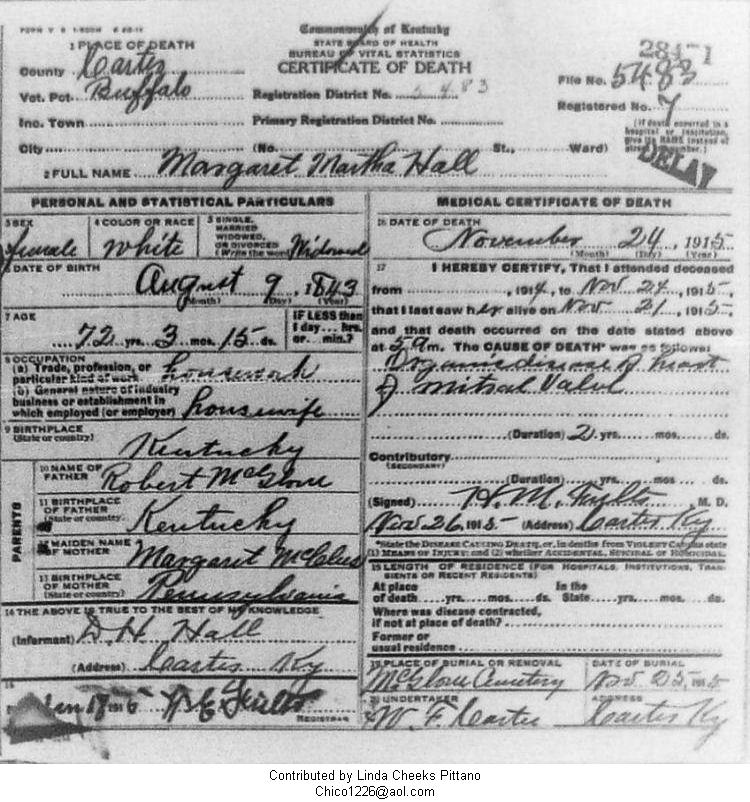 Commonwealth of Kentucky
STATE BOARD OF HEALTH
BUREAU OF VITAL STATISTICS
CERTIFICATE OF DEATH
1 PLACE OF DEATH
County Carter
Vot. Pct. Buffalo
Inc. Town
City
Registration District No. 5483
Primary Registration District No.
(No. St., Ward)
File No. 5483
Registered No. 7
(If death occurred in a hospital or institution, give its NAME instead of street and number.)
DELAY
2 FULL NAME Margaret Martha Hall
PERSONAL AND STATISTICAL PARTICULARS
3 SEX female
4 COLOR OR RACE white
5 SINGLE, MARRIED WIDOWED, OR DIVORCED (Write the word) Widowed
6 DATE OF BIRTH
August 9, 1843
(Month) (Day) (Year)
7 AGE
72 yrs. 3 mos. 15 ds.
IF LESS than 1 day... hrs. or... min.?
8 OCCUPATION
(a) Trade, profession, or particular kind of work housework
(b) General nature of industry business or establishment in which employed (or employer) housewife
9 BIRTHPLACE (State or country) Kentucky
PARENTS
10 NAME OF FATHER Robert McGlone
11 BIRTHPLACE OF FATHER (State or country) Kentucky
12 MAIDEN NAME OF MOTHER Margaret
13 BIRTHPLACE OF MOTHER (State or country) Pennsylvania
14 THE ABOVE IS TRUE TO THE BEST OF MY KNOWLEDGE
(Informant) D. H. Hall
(Address) Carter Ky
15
Jan 18 1916
REGISTRAR
MEDICAL CERTIFICATE OF DEATH
16 DATE OF DEATH
November 24, 1915
(Month) (Day) (Year)
17 I HEREBY CERTIFY, That I attended deceased
from , 1914, to Nov 24, 1915,
that I last saw her alive on Nov 21, 1915,
and that death occurred on the date stated above
at 5 a m. The CAUSE OF DEATH* was as follows:
Organic disease of heart
of mitral Valve
(Duration) 2 yrs. mos. ds.
Contributory
(SECONDARY)
(Duration) yrs. mos. ds.
(Signed) H. M. Fults M. D.
Nov 26, 1915 (Address) Carter Ky
*State the DISEASE CAUSING DEATH, or, in deaths from VIOLENT CAUSES state (1) MEANS OF INJURY; and (2) whether ACCIDENTAL, SUICIDAL OR HOMICIDAL.
18 LENGTH OF RESIDENCE (FOR HOSPITALS, INSTITUTIONS, TRANSIENTS OR RECENT RESIDENTS)
At place of death yrs. mos. ds. In the State yrs. mos. ds.
Where was disease contracted, if not at place of death?
Former or usual residence
19 PLACE OF BURIAL OR REMOVAL McGlone Cemetery
DATE OF BURIAL Nov 25, 1915
20 UNDERTAKER W. F. Carter
ADDRESS Carter Ky
Contributed by Linda Cheeks Pittano
Chico1226@aol.com